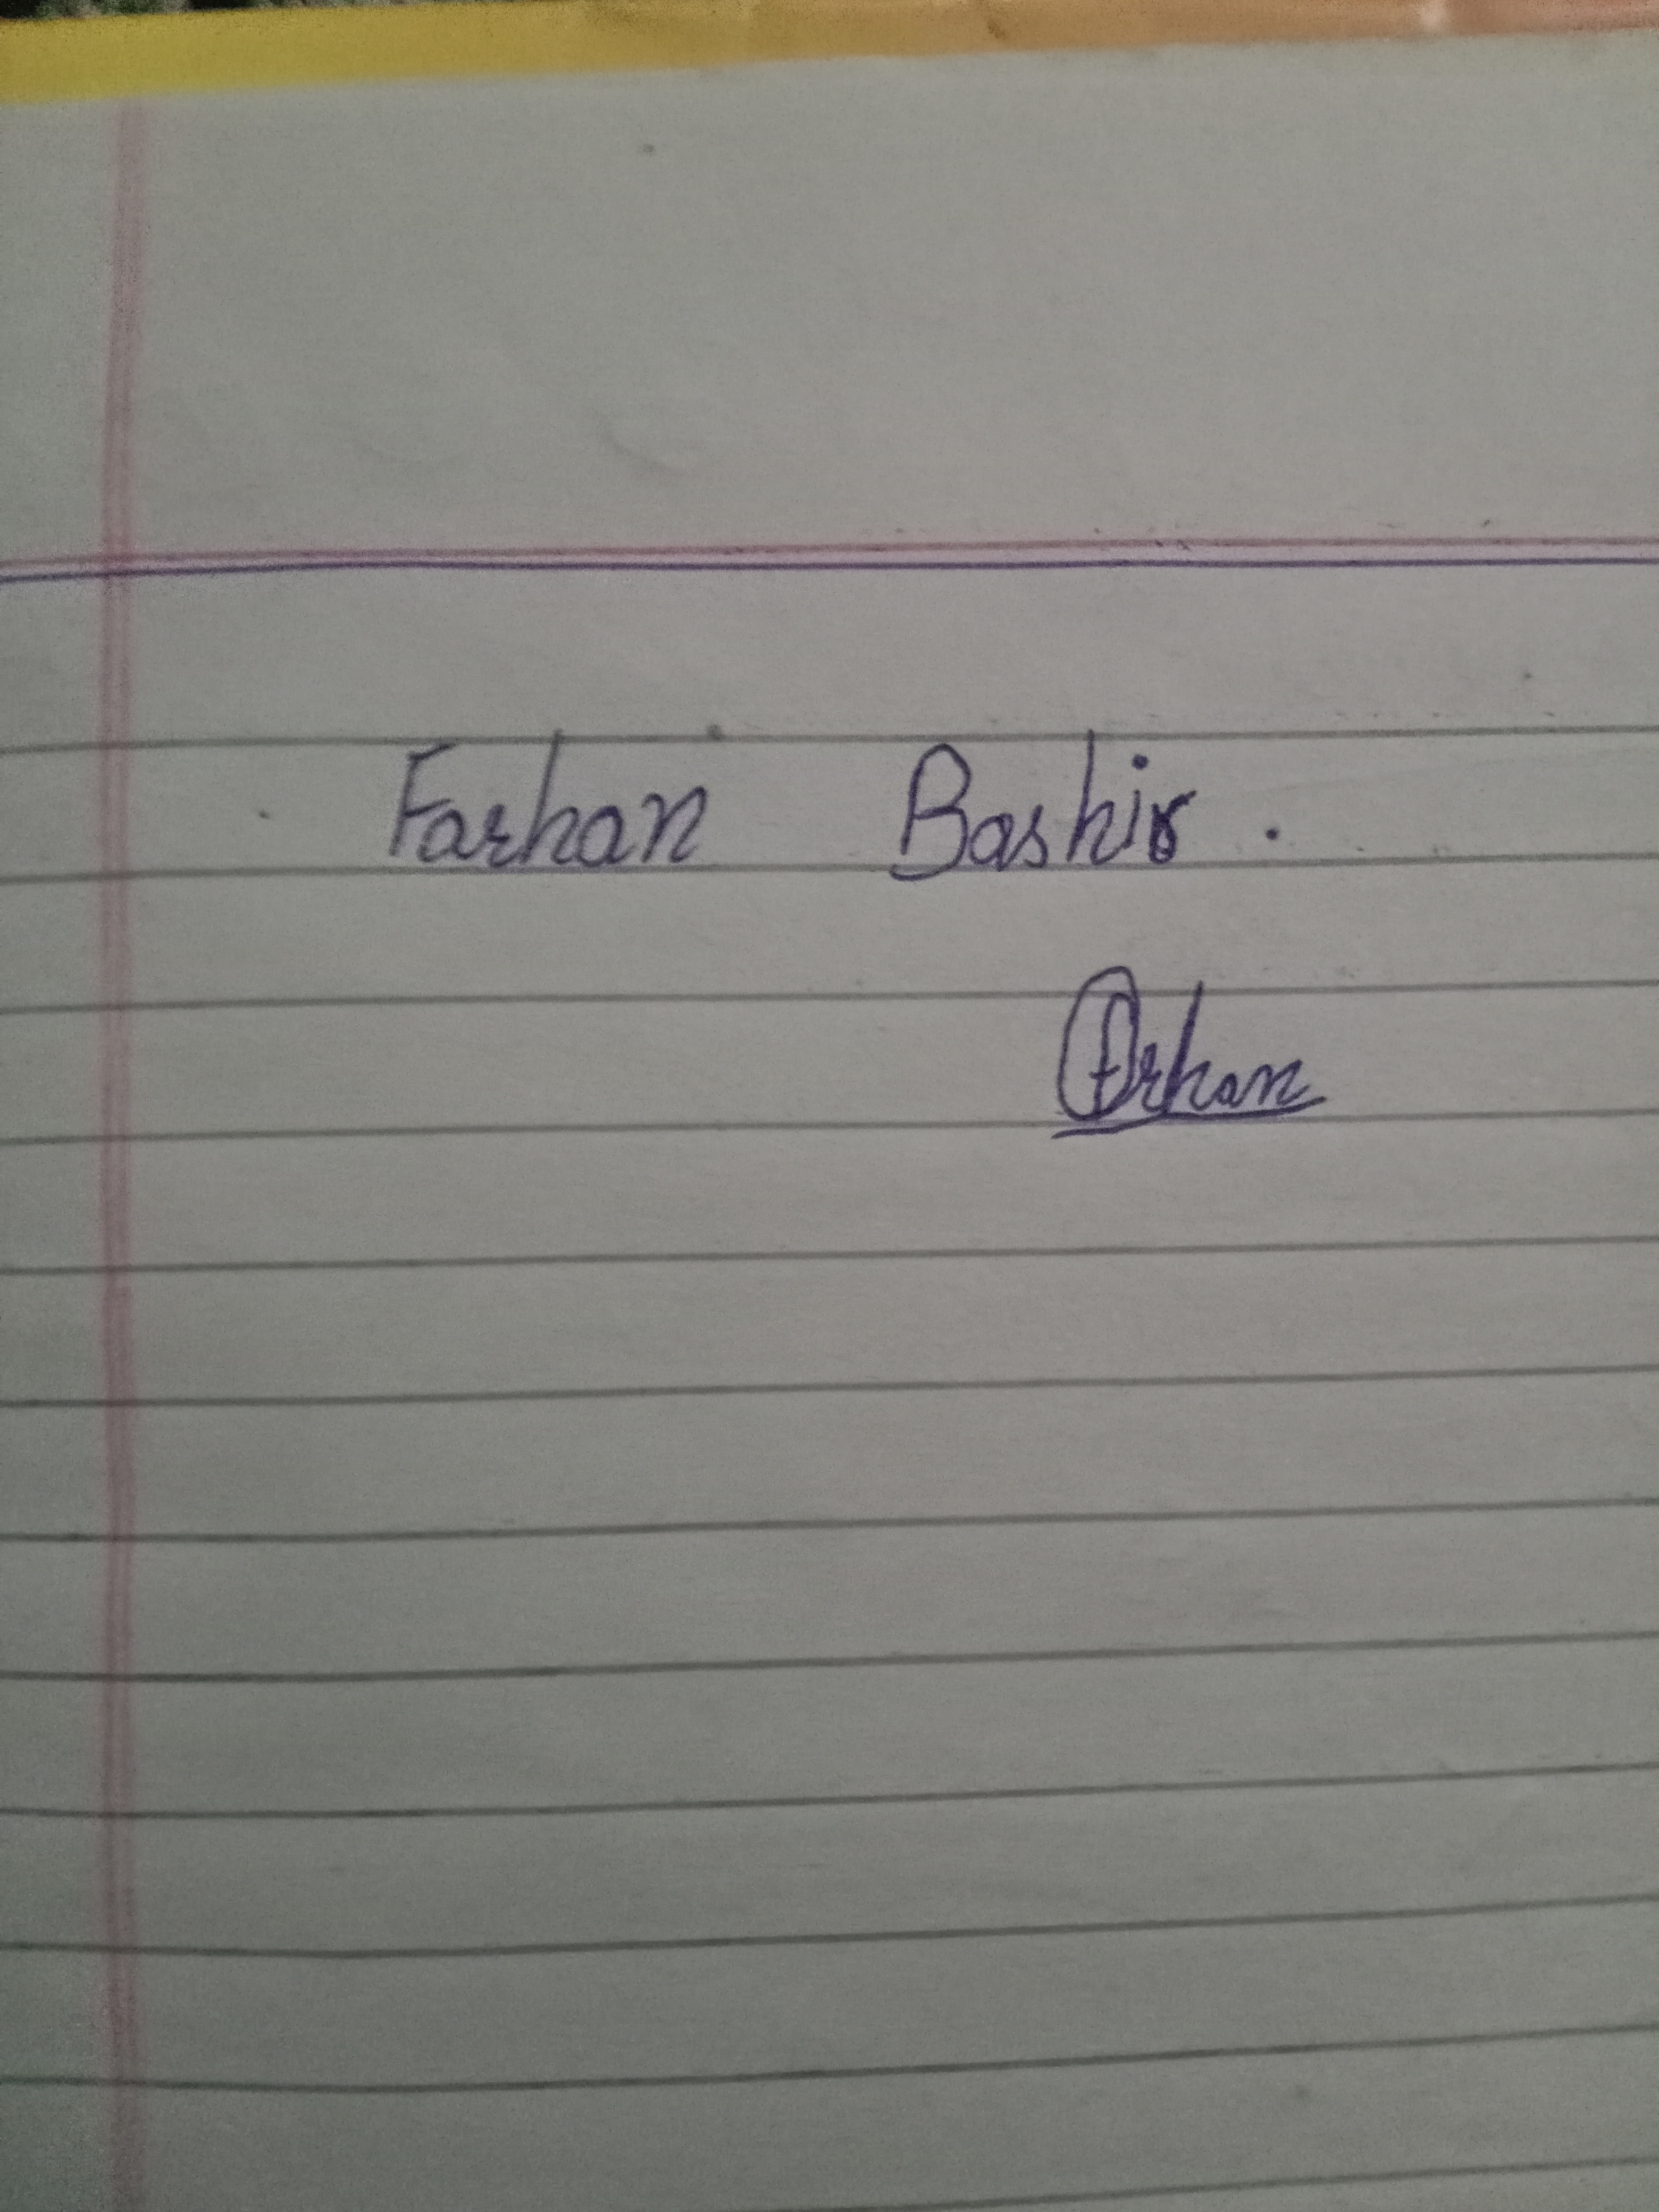 Farhan Bashir.
Farhan